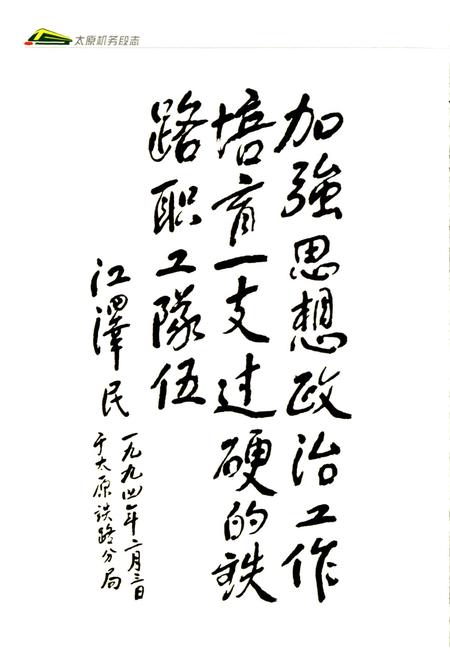 太原机务段志
加強思想政治工作
培育一支过硬的鉄
路职工隊伍
江澤民
一九九四年二月三日
于太原鉄路分局